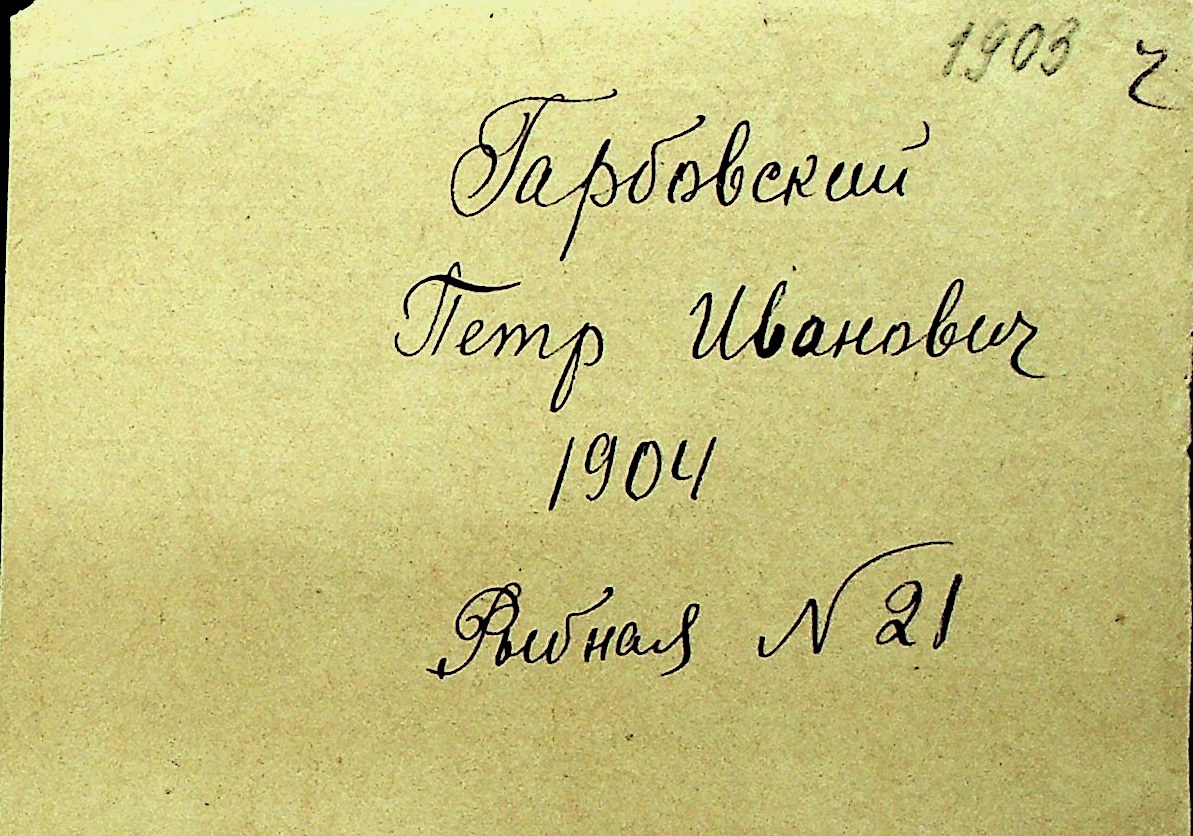 1903 ч
Гарбовский
Петр Иванович
1904
Рыбная N 21